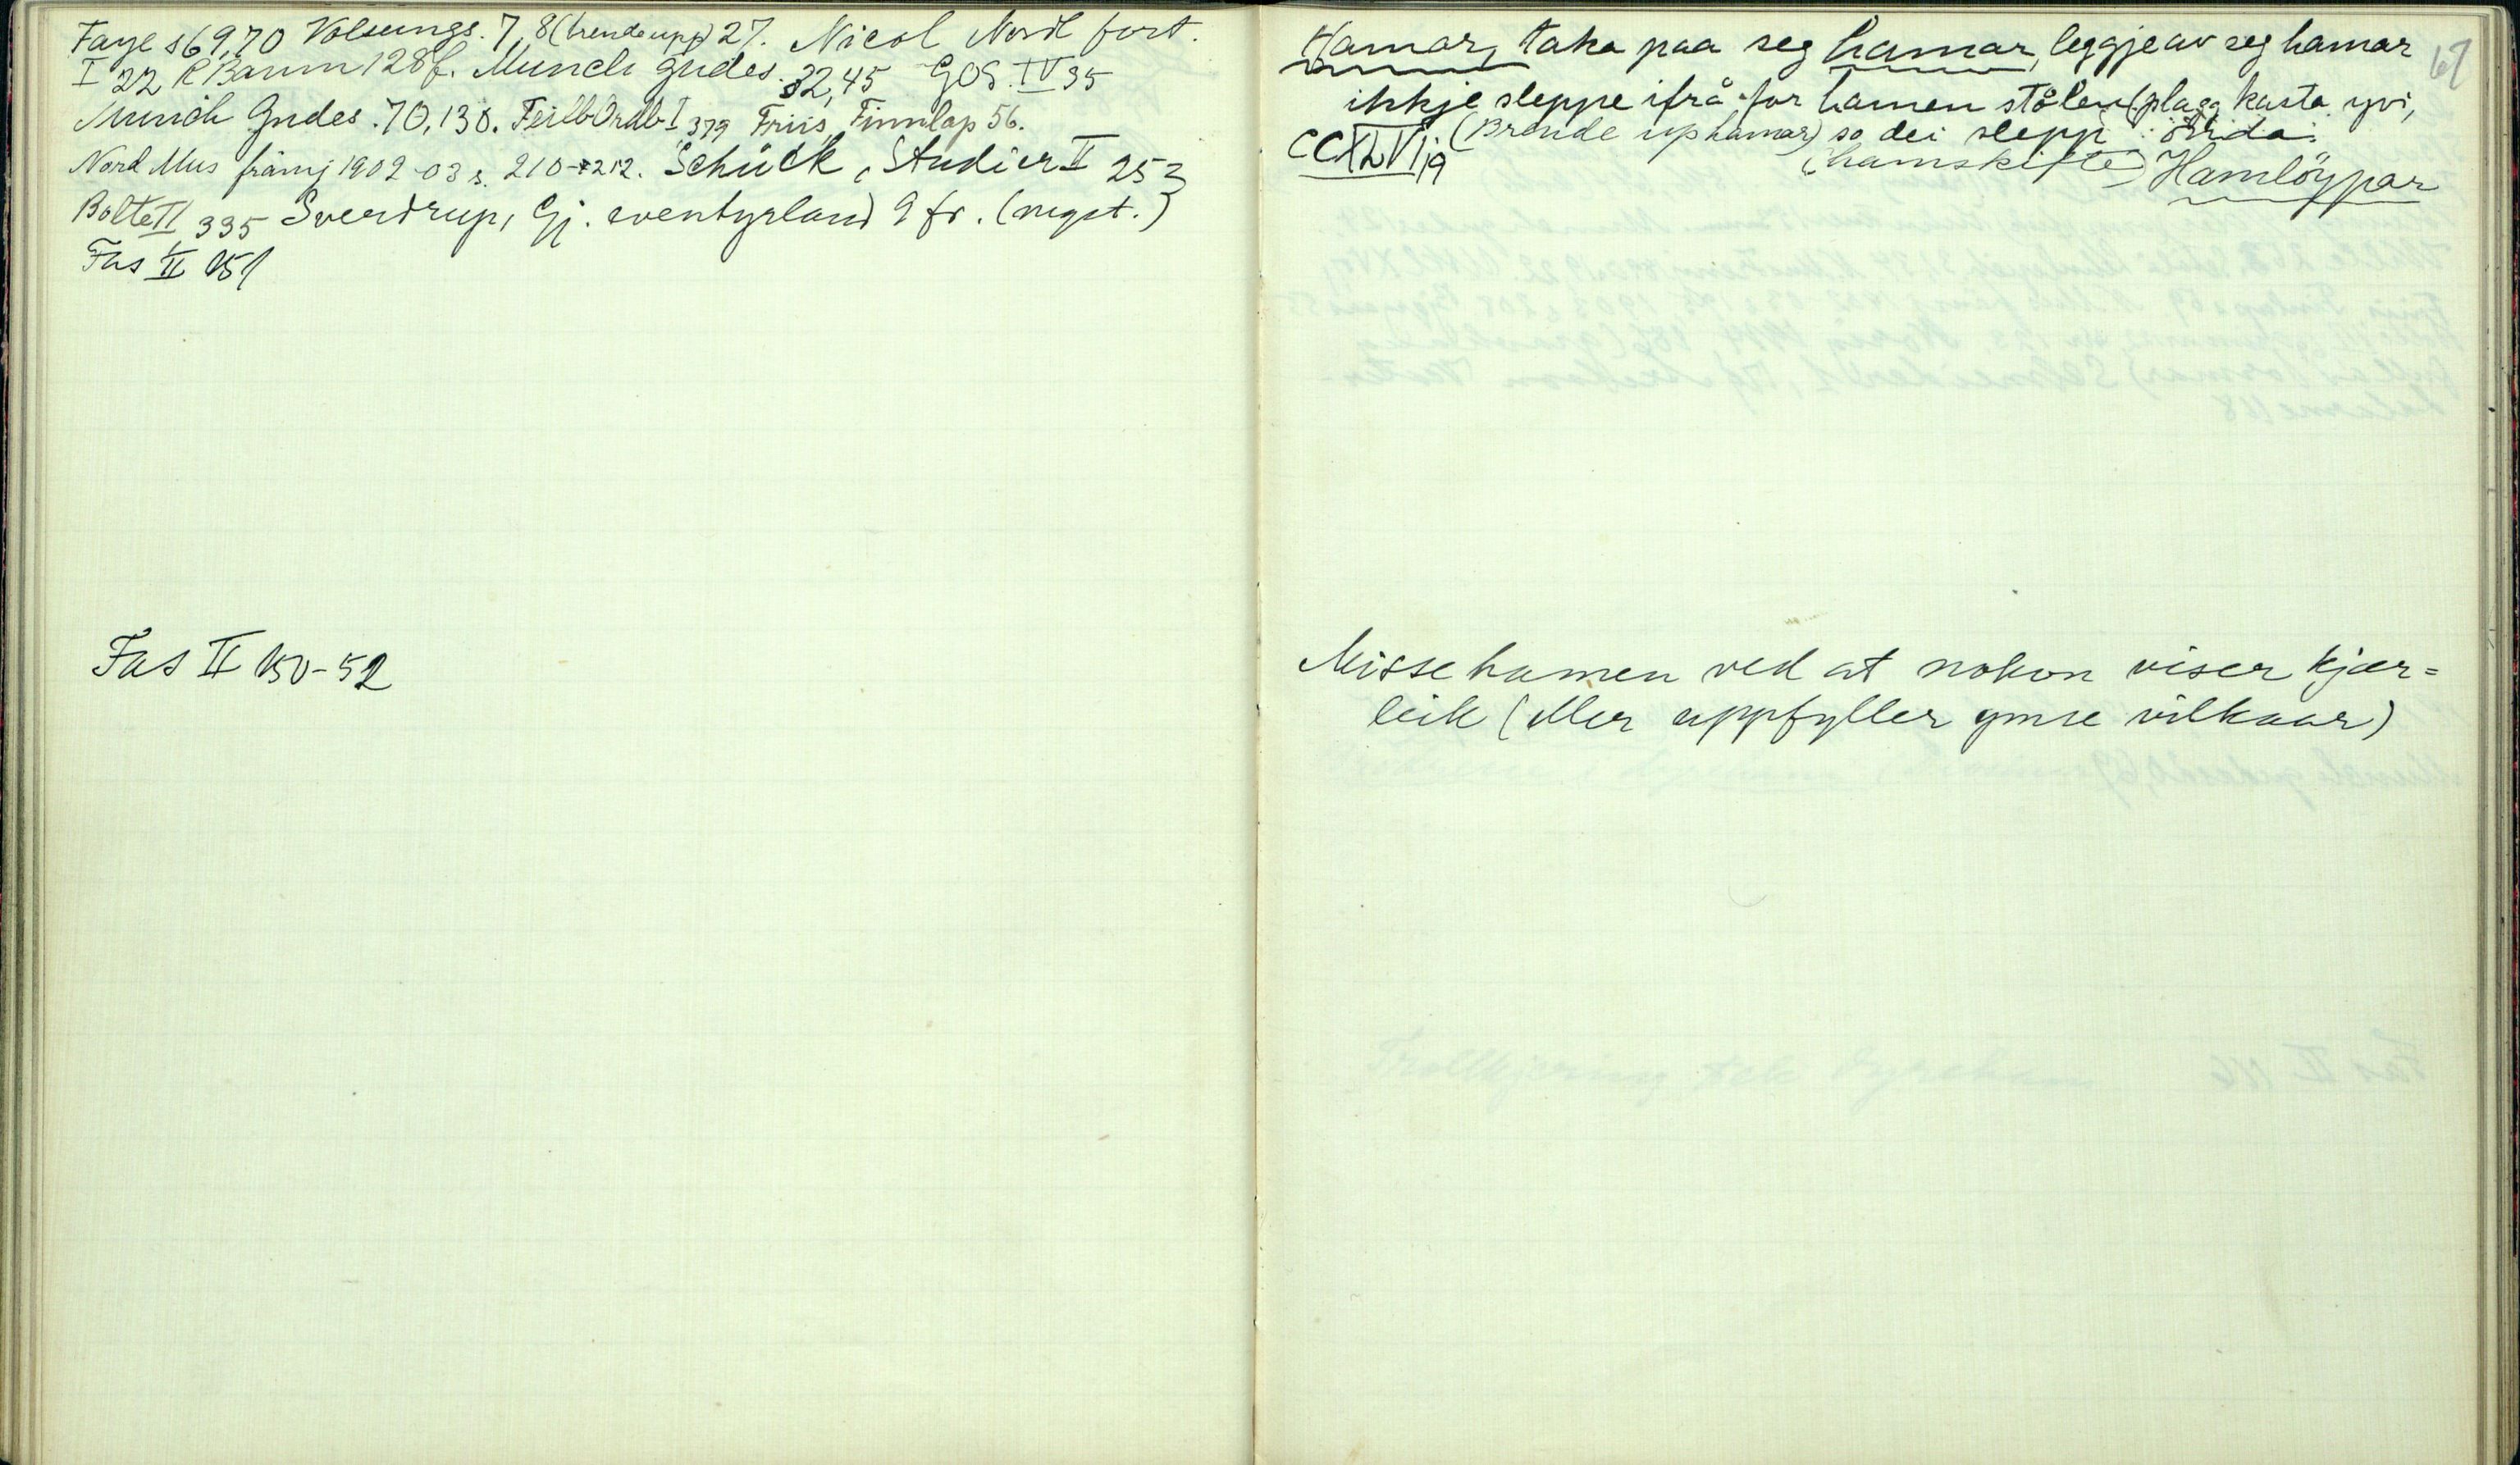 Faye s 69,70 Volsungs. 7, 8 (brende upp) 27. Nicol Nord fort.
I 22 R Baum 128 f. Munch gudes. 32,45 GOS. IV 35
Munch Gudes. 70, 130. FeilbOrdb I 379 Friis, Finnlap 56.
Nord Mus främj 1902-03 s. 210-212. Schück, Studier II 253
Bolte II 335 Sverdrup, Gj. eventyrland 9 fr. (negst.)
Fas II 151
Fas II 150-52
67
Hamar, taka paa seg hamar, leggje av seg hamar
ikkje sleppe ifrå for hamen stålen (plagg kasta yvi,
CCXLVI,9 (Brende up hamar) so dei slepp
(hamskifte) Hamlöypar
Misse hamen ved at nokon viser kjær=
leik (eller uppfyller ymse vilkaar)